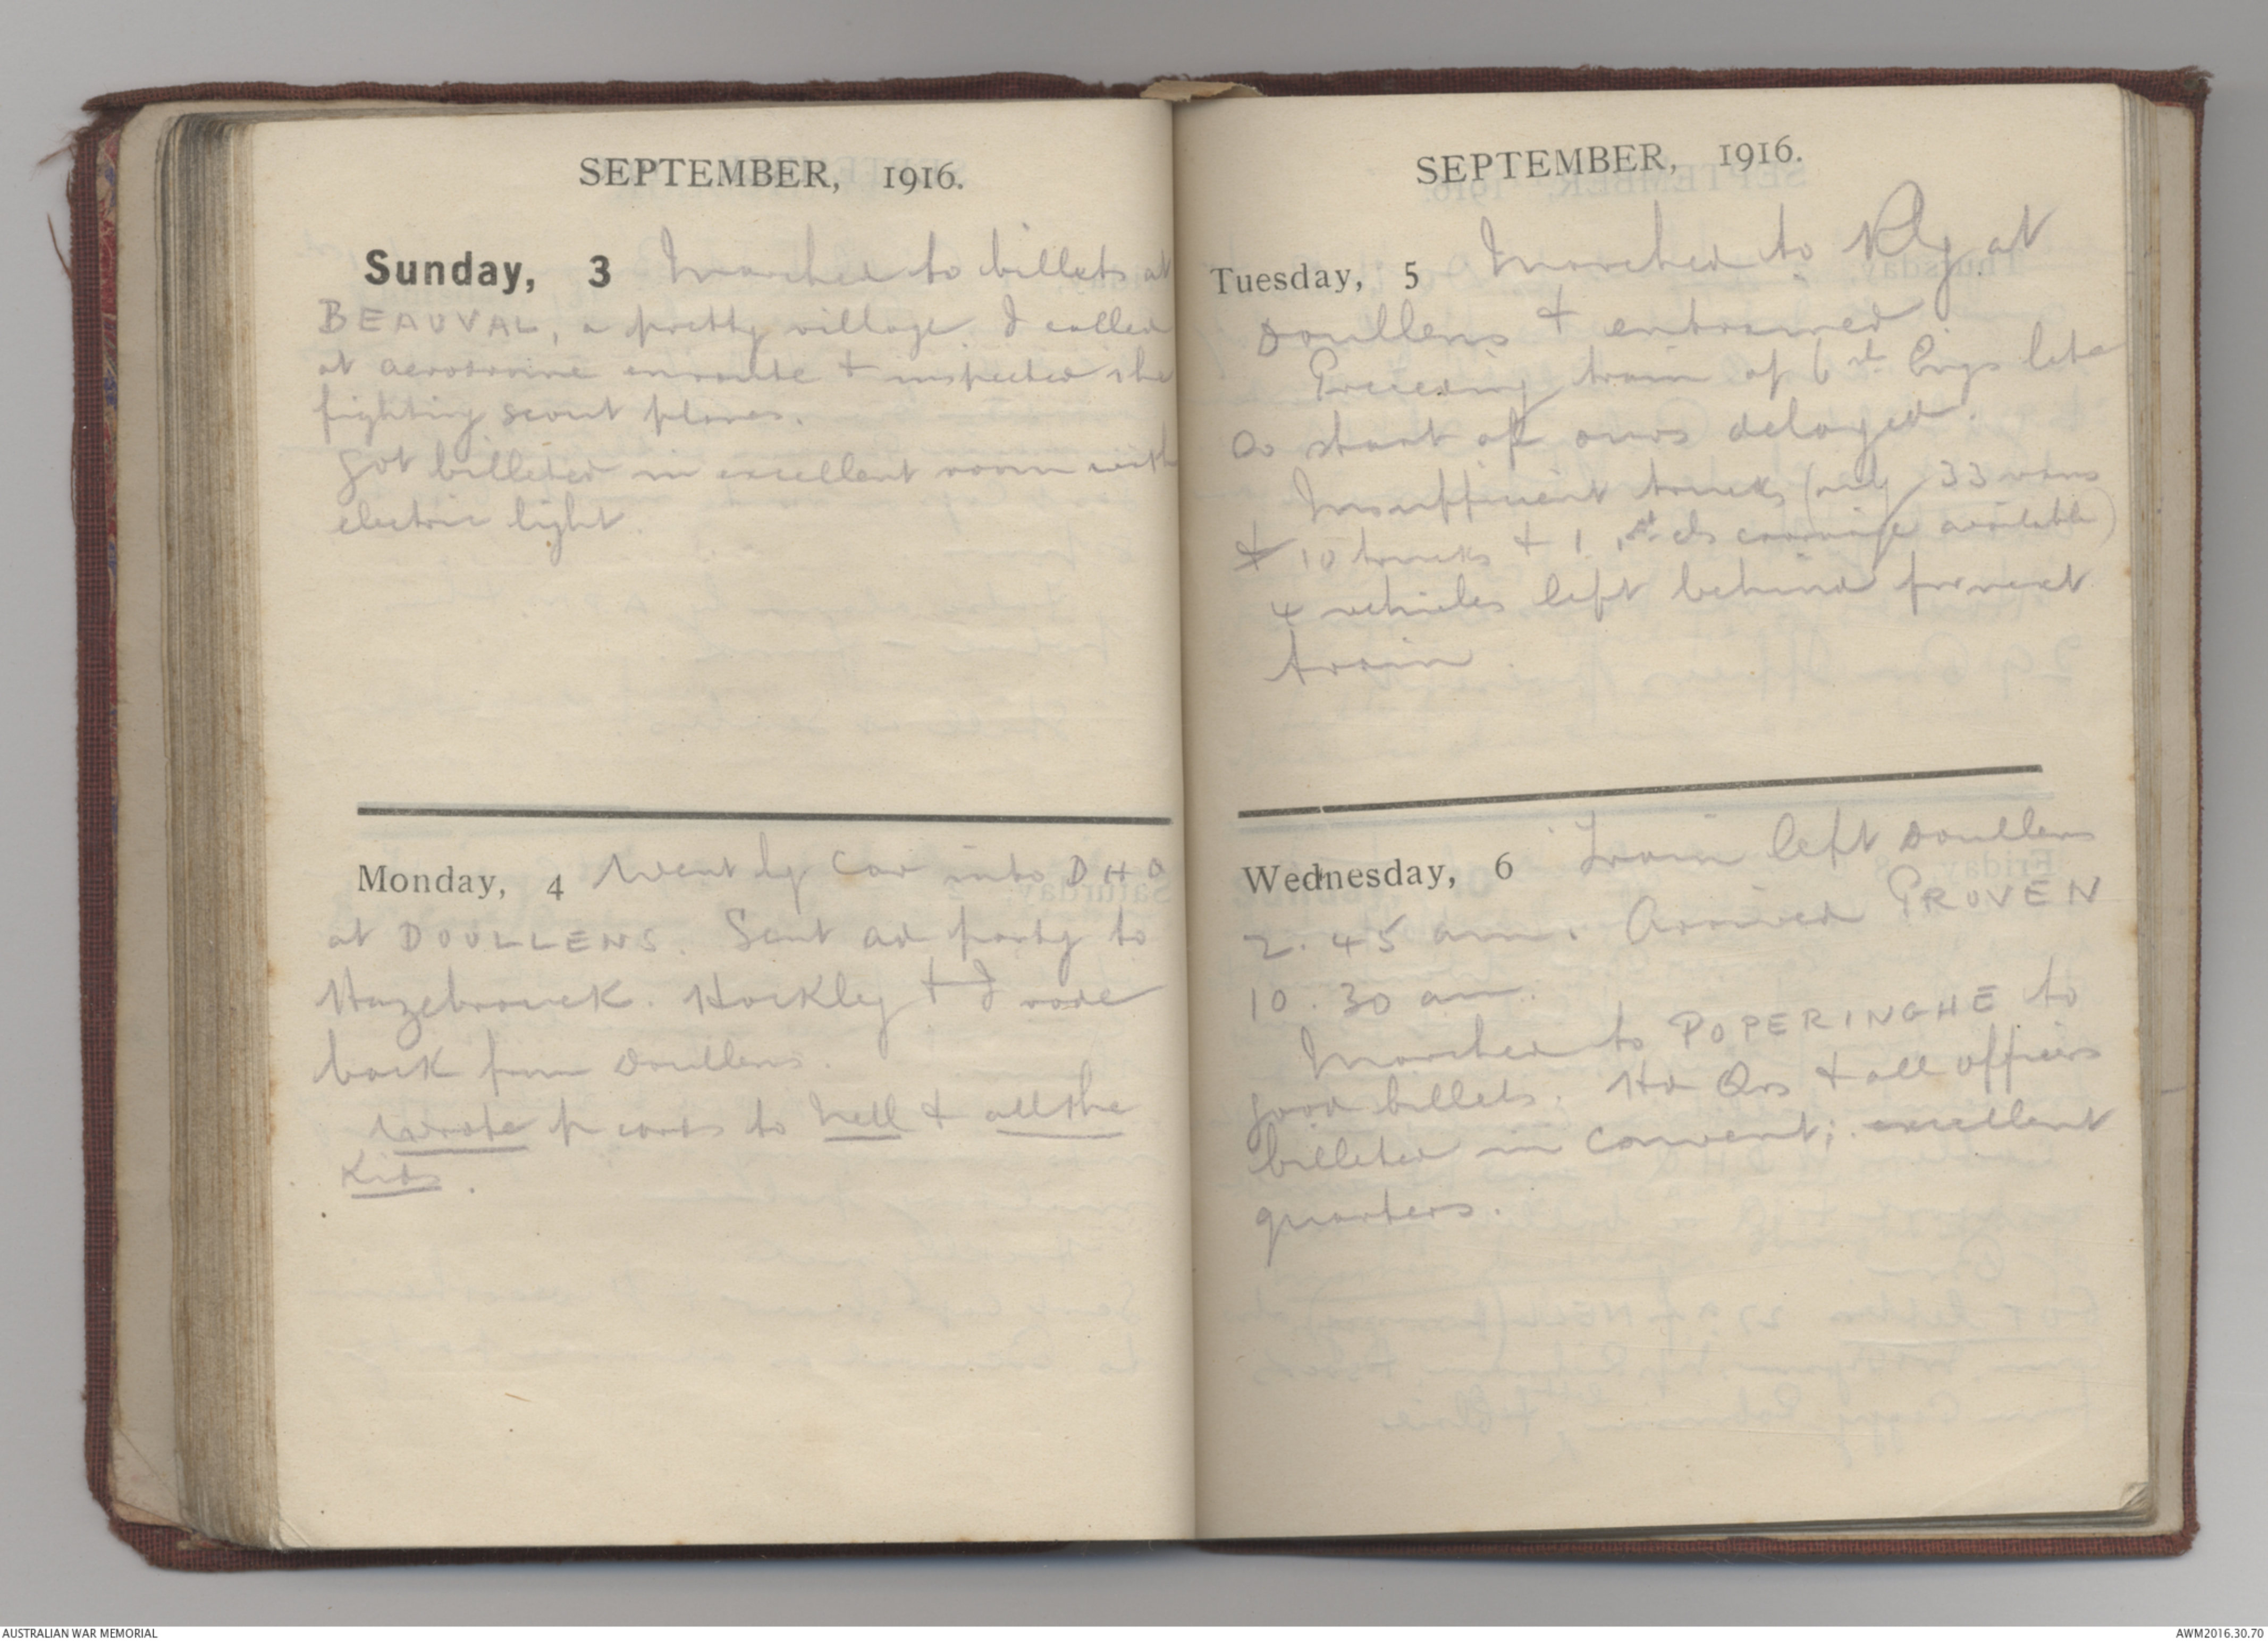 SEPTEMBER, 1916.
Sunday, 3 Marched to billets at
BEAUVAL, a pretty village. I called
at aerodrome enroute & inspected the
fighting scout planes.
Got billeted in excellent room with
electric light.
Monday, 4 Went by car into DHQ
at DOULLENS. Sent ad party to
Hazebrouck. Hockley & I rode
back from Doullens.
Wrote p cards to Nell & all the
Kids.
SEPTEMBER, 1916.
Tuesday, 5 Marched to Rly at
Doullens & entrained
Preceding train of 6th Engs late
so start of ours delayed.
Insufficient trucks (only 33 vans
& 10 trucks & 1 1st cls carriage available)
4 vehicles left behind for next
train.
Wednesday, 6 Train left Doullens
2.45 am. Arrived PROVEN
10.30 am.
Marched to POPERINGHE to
good billets. Hd Qrs & all officers
billeted in convent; excellent
quarters.
AUSTRALIAN WAR MEMORIAL
AWM2016.30.70